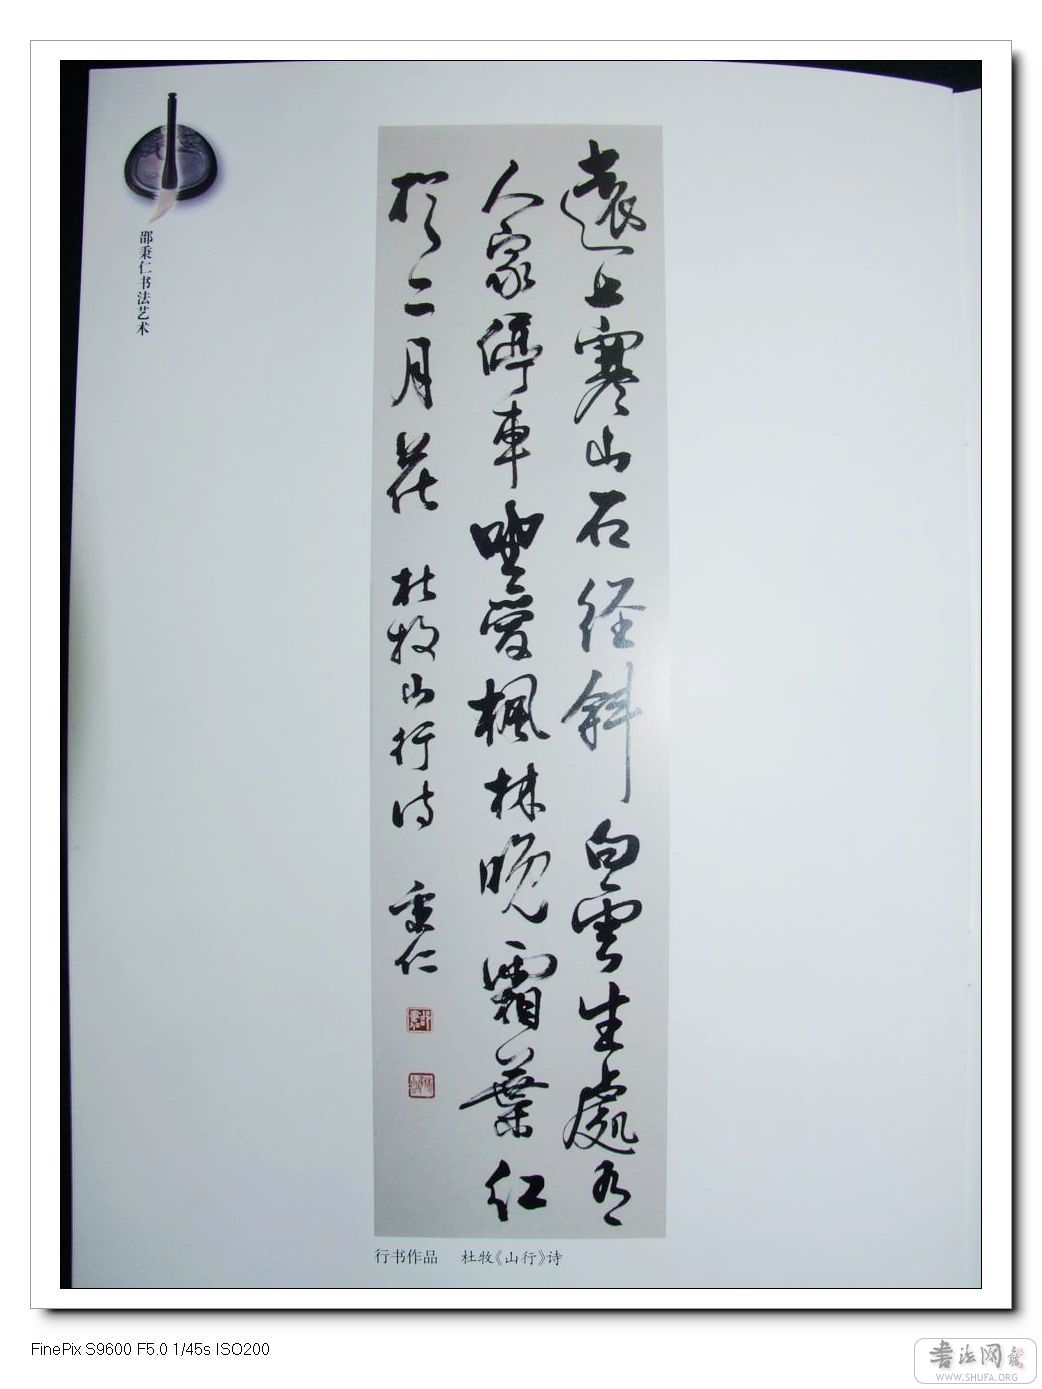 邵秉仁书法艺术
遠上寒山石径斜白雲生處有
人家停車坐愛楓林晚霜葉红
於二月花 杜牧山行诗 秉仁
行书作品 杜牧《山行》诗
FinePix S9600 F5.0 1/45s ISO200
书法网
WWW.SHUFA.ORG